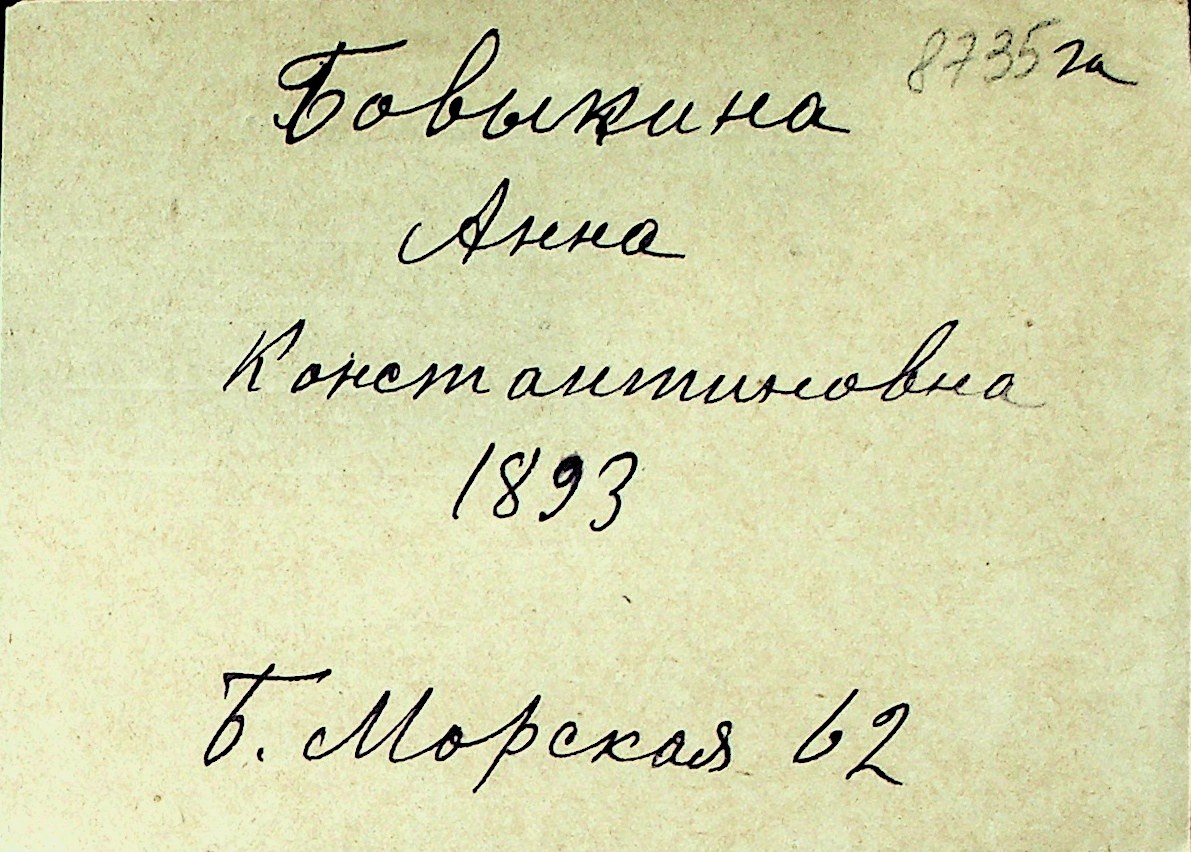 8735 га
Бовыкина
Анна
Константиновна
1893
Б. Морская 62